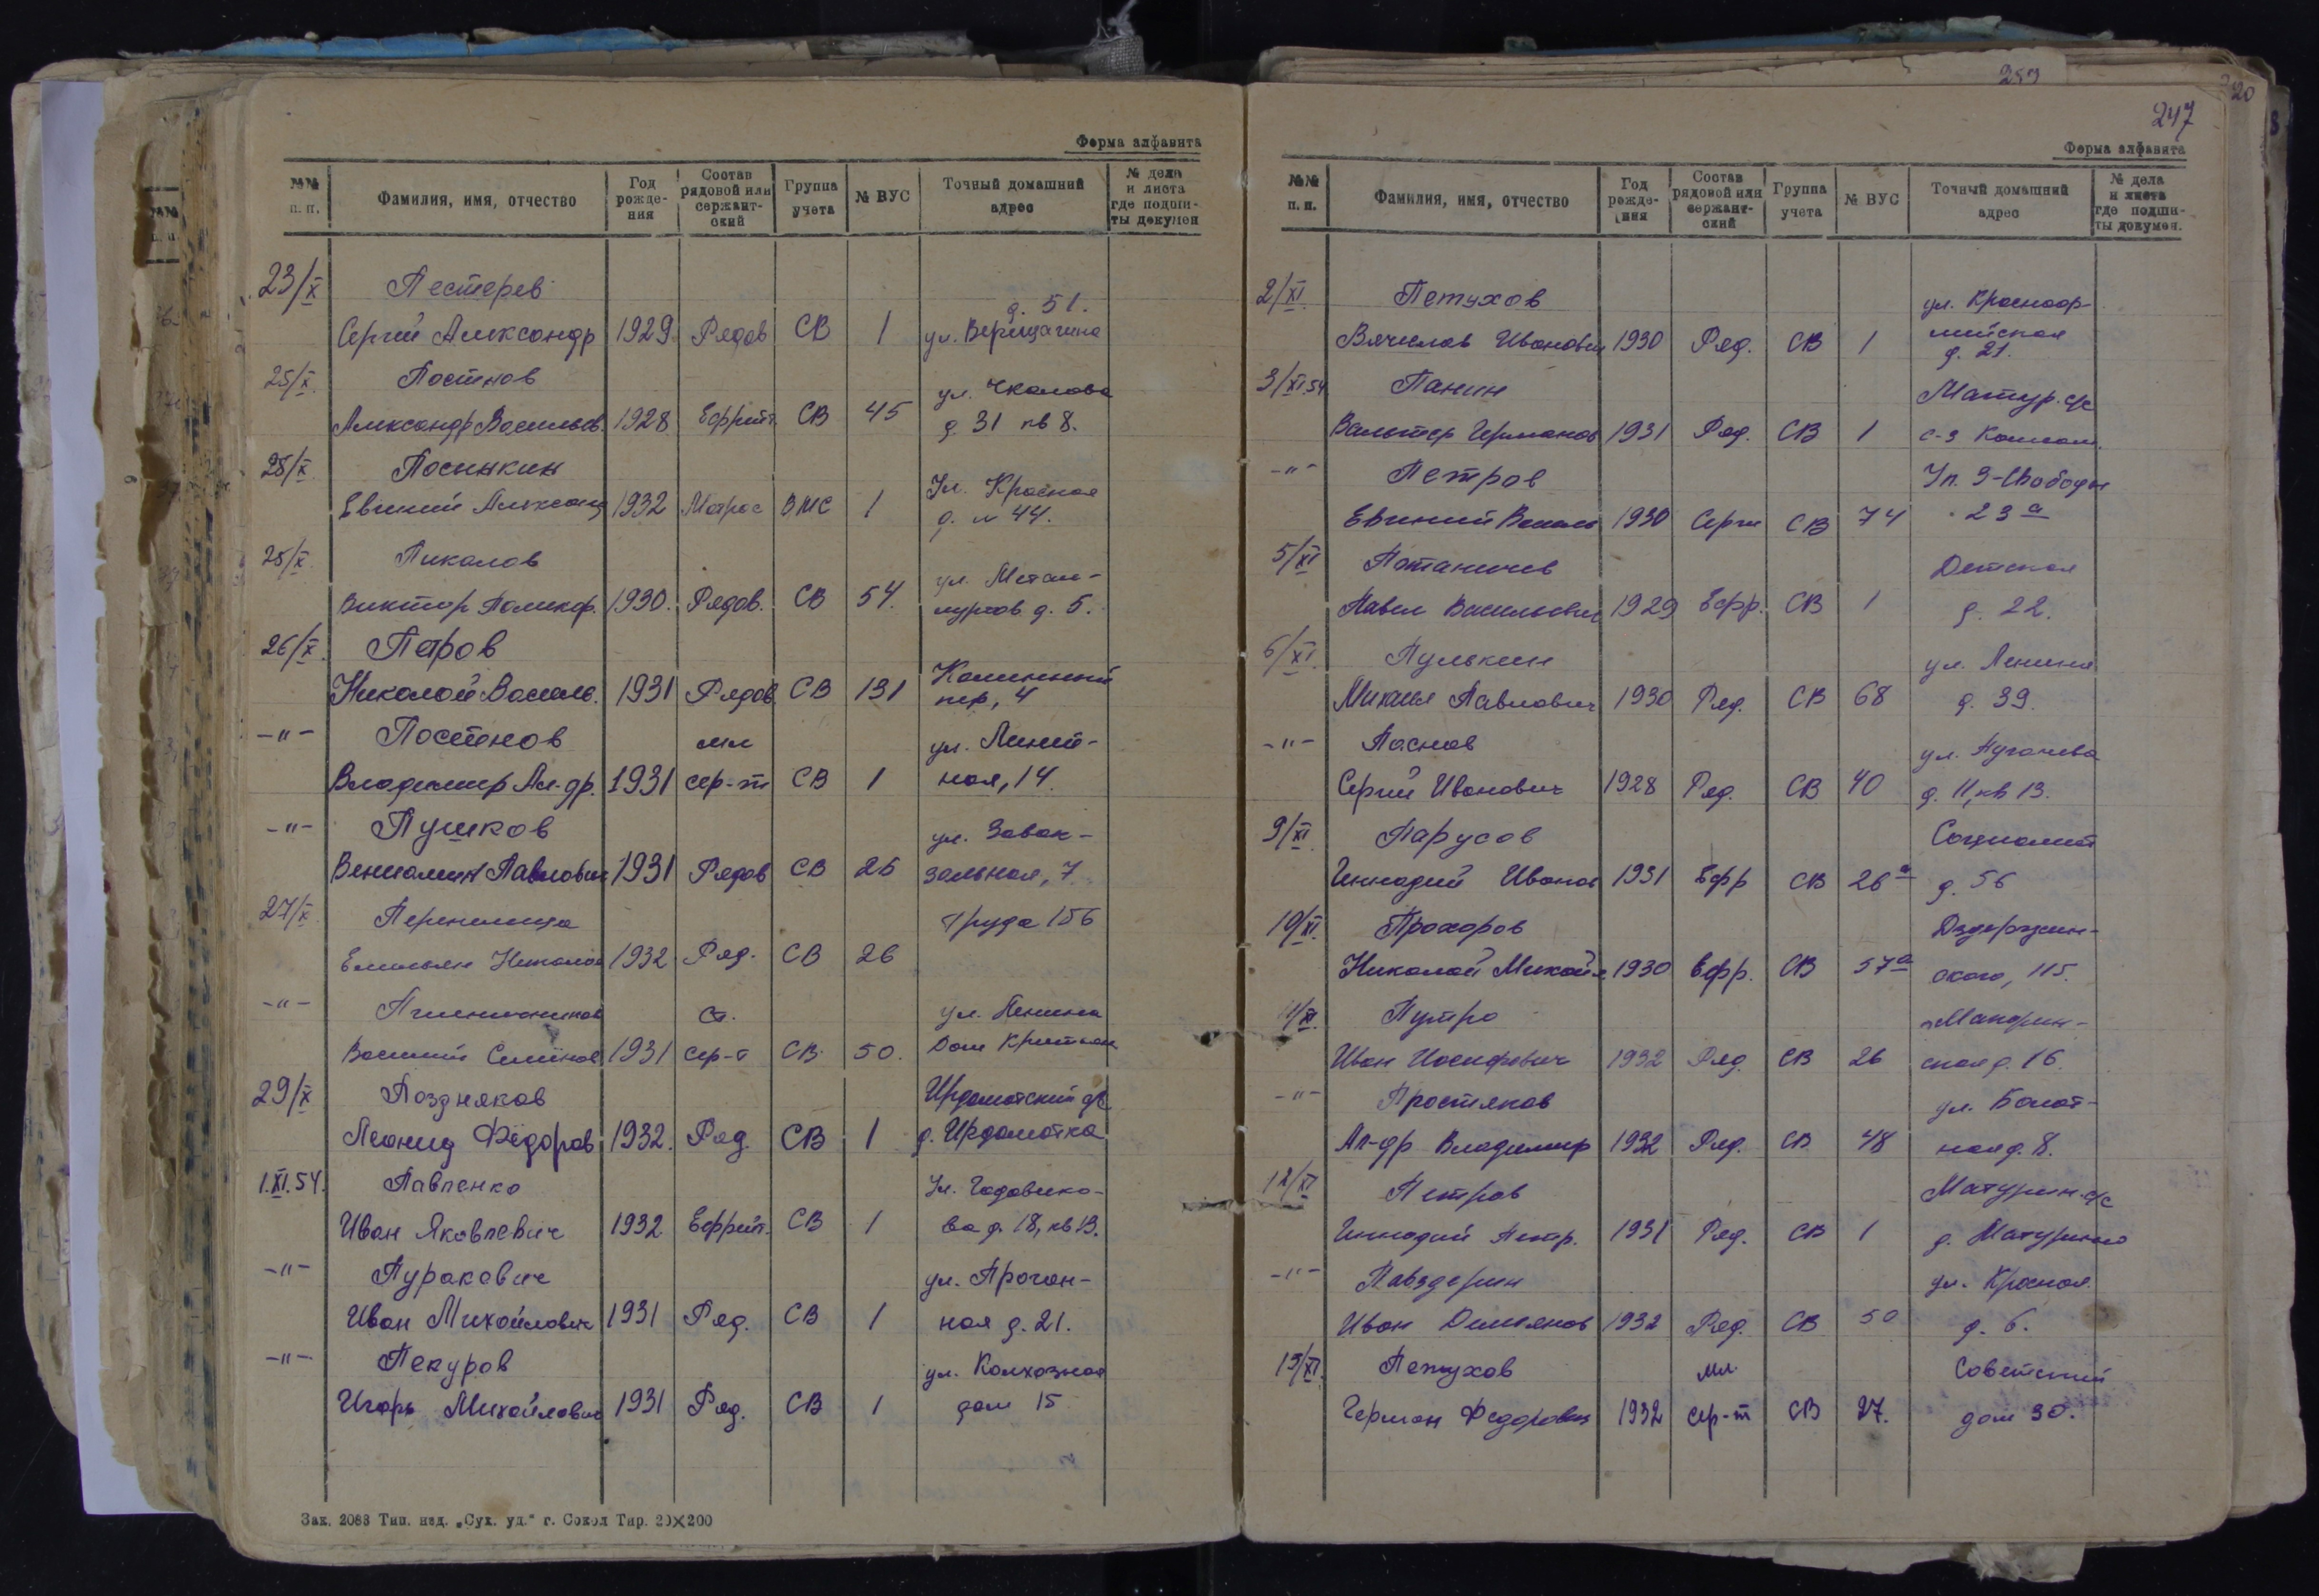 Форма алфавита
№№ п. п. Фамилия, имя, отчество Год рожде- ния Состав рядовой или сержант- ский Группа учета № ВУС Точный домашний адрес № дела и листа где подши- ты докумен
23/X Пестерев д. 51.
Сергей Александр 1929 Рядов СВ 1 ул. Верещагина
25/X. Постнов ул. Чкалова
Александр Васильев. 1928 Ефрейт СВ 45 д. 31 кв 8.
25/X. Посныкин Ул. Красная
Евгений Александ 1932 Матрос ВМС 1 д. 44.
25/X. Пикалов ул. Метал-
Виктор Поликар. 1930. Рядов. СВ 54. лургов д. 5.
26/X. Петров Калининский
Николай Василь. 1931 Рядов. СВ 131 пер, 4
-"- Постнов мл ул. Линей-
Владимир Ал-др. 1931 сер-т СВ 1 ная, 14.
-"- Пушков ул. Завок-
Вениамин Павлович 1931 Рядов СВ 26 зальная, 7.
27/X. Перепилица Труда 156
Емельян Николае 1932 Ряд. СВ 26
-"- Пшеничников Ст. ул. Ленина
Василий Семёнов 1931 сер-т СВ 50.
29/X Поздняков Ирдоматский с/с
Леонид Фёдоров 1932. Ряд. СВ 1 д. Ирдоматка
1.XI.54. Павленко Ул. Годовико-
Иван Яковлевич 1932 Ефрейт. СВ 1 ва д. 18, кв 13.
-"- Туракевич ул. Прогон-
Иван Михайлович 1931 Ряд. СВ 1 ная д. 21.
-"- Пекуров ул. Колхозная
Игорь Михайлович 1931 Ряд. СВ 1 дом 15
Зак. 2088 Тип. изд. „Сух. уд." г. Сокол Тир. 20×200
259
20
247
Форма алфавита
№№ п. п. Фамилия, имя, отчество Год рожде- ния Состав рядовой или сержант- ский Группа учета № ВУС Точный домашний адрес № дела и листа где подши- ты докумен.
2/XI. Петухов ул. Красноар-
Вячеслав Иванович 1930 Ряд. СВ 1 мейская д. 21.
3/XI.54 Панин Матур. с/с
Вальтер Германов 1931 Ряд. СВ 1
-"- Петров Ул. 9-Свободы
Евгений Василь 1930 Серж СВ 74 23 а
5/XI Потаничев Детская
Павел Васильевич 1929 Ефр. СВ 1 д. 22.
6/XI. Пулькин ул. Ленина
Михаил Павлович 1930 Ряд. СВ 68 д. 39.
-"- Паснов ул. Пугачева
Сергей Иванович 1928 Ряд. СВ 40 д. 11, кв 13.
9/XI. Парусов Социалист
Геннадий Иванов 1931 Ефр СВ 26 а д. 56
10/XI. Прохоров Дзержин-
Николай Михайл 1930 Ефр. СВ 57 а ского, 115.
11/XI. Путро
Иван Иосифович 1932 Ряд. СВ 26 ская д. 16.
-"- Простяков ул. Болот-
Ал-др Владимир 1932 Ряд. СВ 48 ная д. 8.
12/XI Петров Матурин. с/с
Геннадий Петр. 1931 Ряд. СВ 1 д. Матурино
-"- Павздерин ул. Красная.
Иван Демьянов 1932 Ряд. СВ 50 д. 6.
15/XI. Петухов мл. Советский
Герман Федорович 1932 сер-т СВ 27. дом 30.